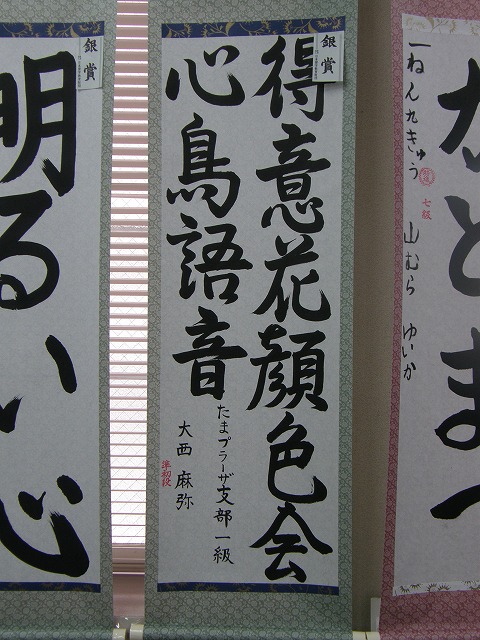 かとまつ
一ねん九きゅう
七級
山むら ゆいか
銀賞
得意花顔色会
心鳥語音
たまプラーザ支部 一級
大西 麻弥
準初段
銀賞
明るい心